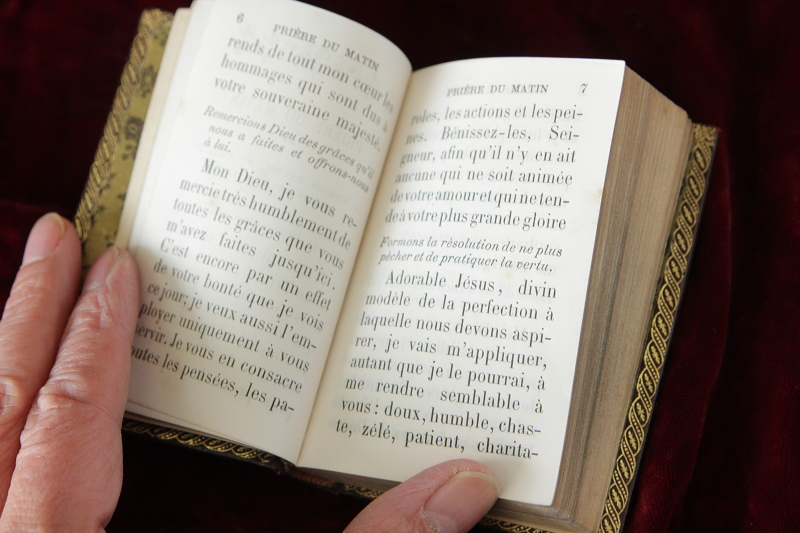 6
PRIÈRE DU MATIN
rends de tout mon cœur les
hommages qui sont dus à
votre souveraine majesté.
Remercions Dieu des grâces qu'il
nous a faites et offrons-nous
à lui.
Mon Dieu, je vous re-
mercie très humblement de
toutes les grâces que vous
m'avez faites jusqu'ici.
C'est encore par un effet
de votre bonté que je vois
ce jour; je veux aussi l'em-
ployer uniquement à vous
servir. Je vous en consacre
toutes les pensées, les pa-
PRIÈRE DU MATIN 7
roles, les actions et les pei-
nes. Bénissez-les, Sei-
gneur, afin qu'il n'y en ait
aucune qui ne soit animée
de votre amour et qui ne ten-
de à votre plus grande gloire
Formons la résolution de ne plus
pécher et de pratiquer la vertu.
Adorable Jésus, divin
modèle de la perfection à
laquelle nous devons aspi-
rer, je vais m'appliquer,
autant que je le pourrai, à
me rendre semblable à
vous : doux, humble, chas-
te, zélé, patient, charita-